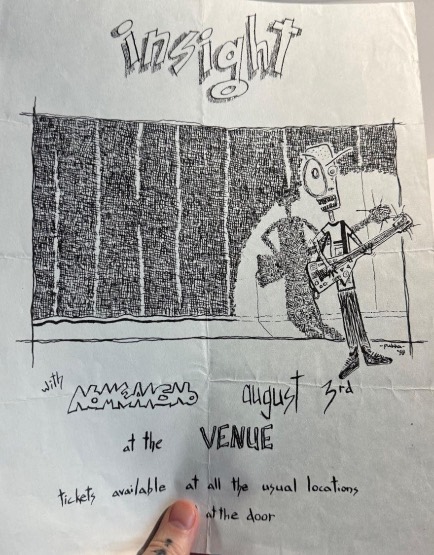 insight
-pushka-
'89
with NOMEANSNO august 3rd
at the VENUE
tickets available at all the usual locations
at the door